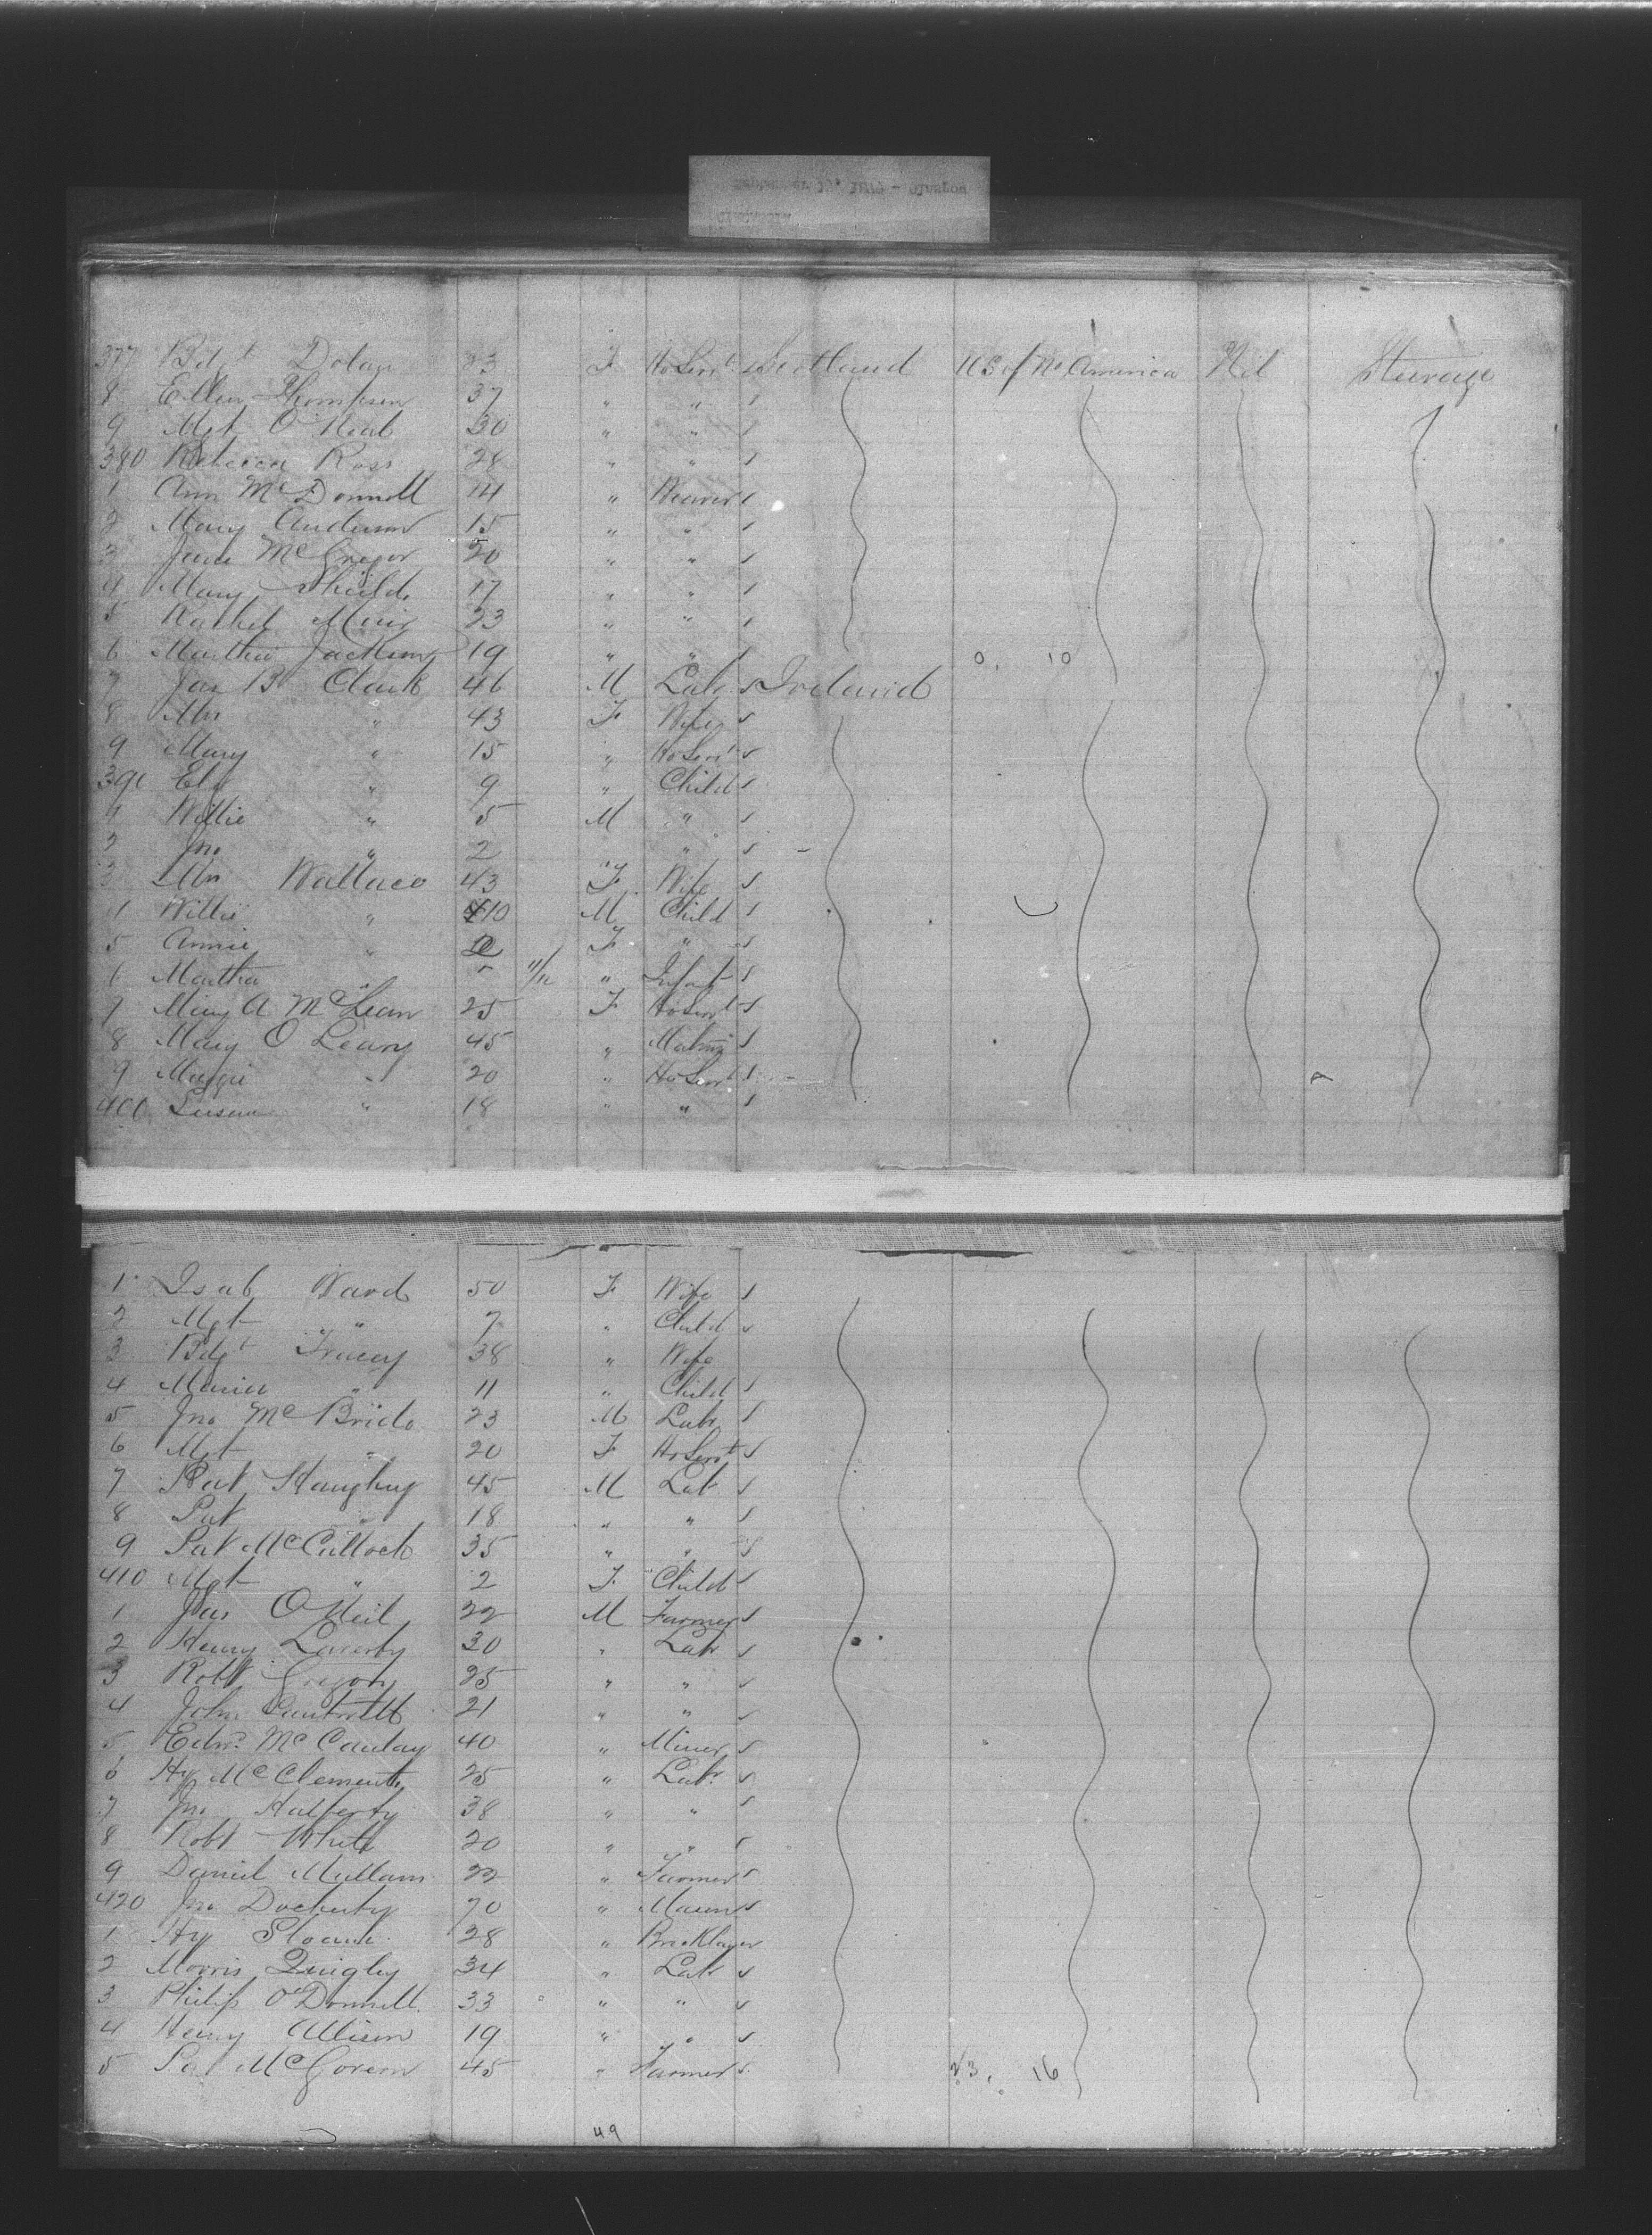 377 Bdgt Dolan 23 F HoServt s Scotland US of No America Nil Steerage
8 Ellen Thompson 37 " " s
9 Mgt O'Neal 30 " " s
380 Rebecca Ross 28 " " s
1 Ann McDonnell 14 " Weaver s
2 Mary Anderson 15 " " s
3 Jane McGregor 20 " " s
4 Mary Shields 17 " " s
5 Rachel Muir 23 " " s
6 Martha Jackson 19 " " s 0. 10
7 Jas B Clark 46 M Labr s Ireland
8 Mrs " 43 F Wife s
9 Mary " 15 " HoServt s
390 Elz " 9 " Child s
1 Willie " 5 M " s
2 Jno " 2 " s
3 Mrs Wallace 43 F Wife s
4 Willie " 10 M Child s
5 Annie " F " s
6 Martha " 11/12 " Infant s
7 Mary A McLean 25 F HoServt s
8 Mary O Leary 45 " s
9 Maggie " 20 " HoServt s
400 Susan " 18 " " s
1 Isab Ward 50 F Wife s
2 Mgt " 7 " Child s
3 Bdgt Tracey 38 " Wife
4 Maria " 11 " Child s
5 Jno McBride 23 M Labr s
6 Mgt " 20 F HoServt s
7 Pat Haughey 45 M Labr s
8 Pat " 18 " " s
9 Pat McCulloch 35 " " s
410 Mgt " 2 F Child s
1 Jas O'Neil 22 M Farmer s
2 Henry Laverty 30 " Labr s
3 Robt Gregory 25 " " s
4 John Cantrell 21 " " s
5 Edwd McCaulay 40 " Miner s
6 Hy McClements 25 " Labr s
7 Jno Halferty 38 " " s
8 Robt White 20 " " s
9 Daniel Mullam 22 " Farmer s
420 Jno Docherty 70 " Mason s
1 Hy Sloane 28 " Bricklayer
2 Morris Quigley 34 " Labr s
3 Philip O'Donnell 33 " " s
4 Henry Allison 19 " " s
5 Pat McGovern 45 " Farmer s 23. 16
49